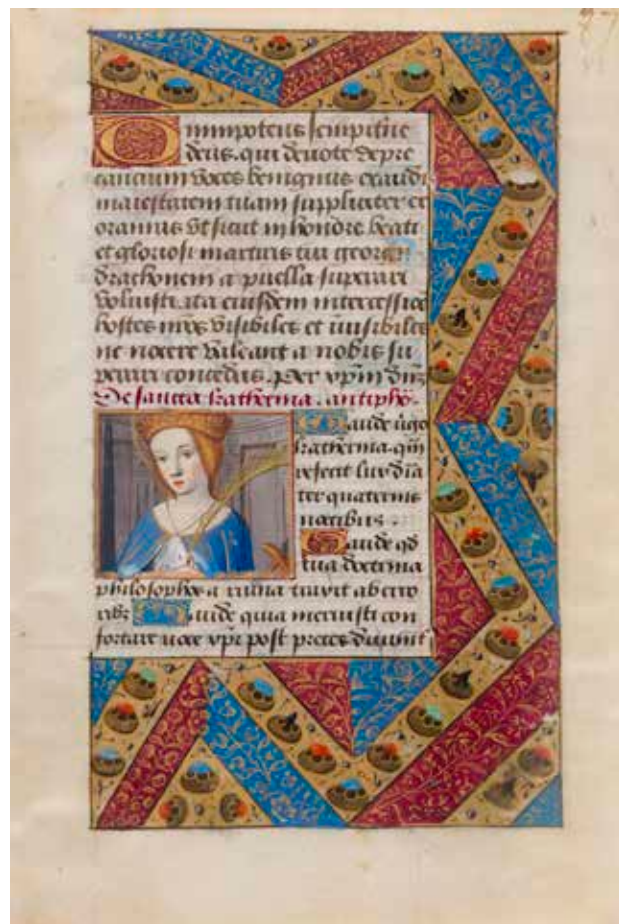 87
Omnipotens sempiterne
deus. qui devote depre
cancium voces benignus exaudis
maiestatem tuam suppliciter ex
oramus vt sicut in honore beati
et gloriosi martiris tui georgii
drachonem a puella superari
voluisti. ita eiusdem intercessione
hostes nros visibiles et inuisibiles
ne nocere valeant a nobis su
perari concedas. per xpm dnm
De sancta katherina. antiphõ.
Gaude v̑go
katherina. qm̄
refecit lux dĩa
ter quaternis
noctibus.
Gaude qd
tua doctrina
philosophos a ruina traxit
Gaude quia meruisti con
fortare post preces